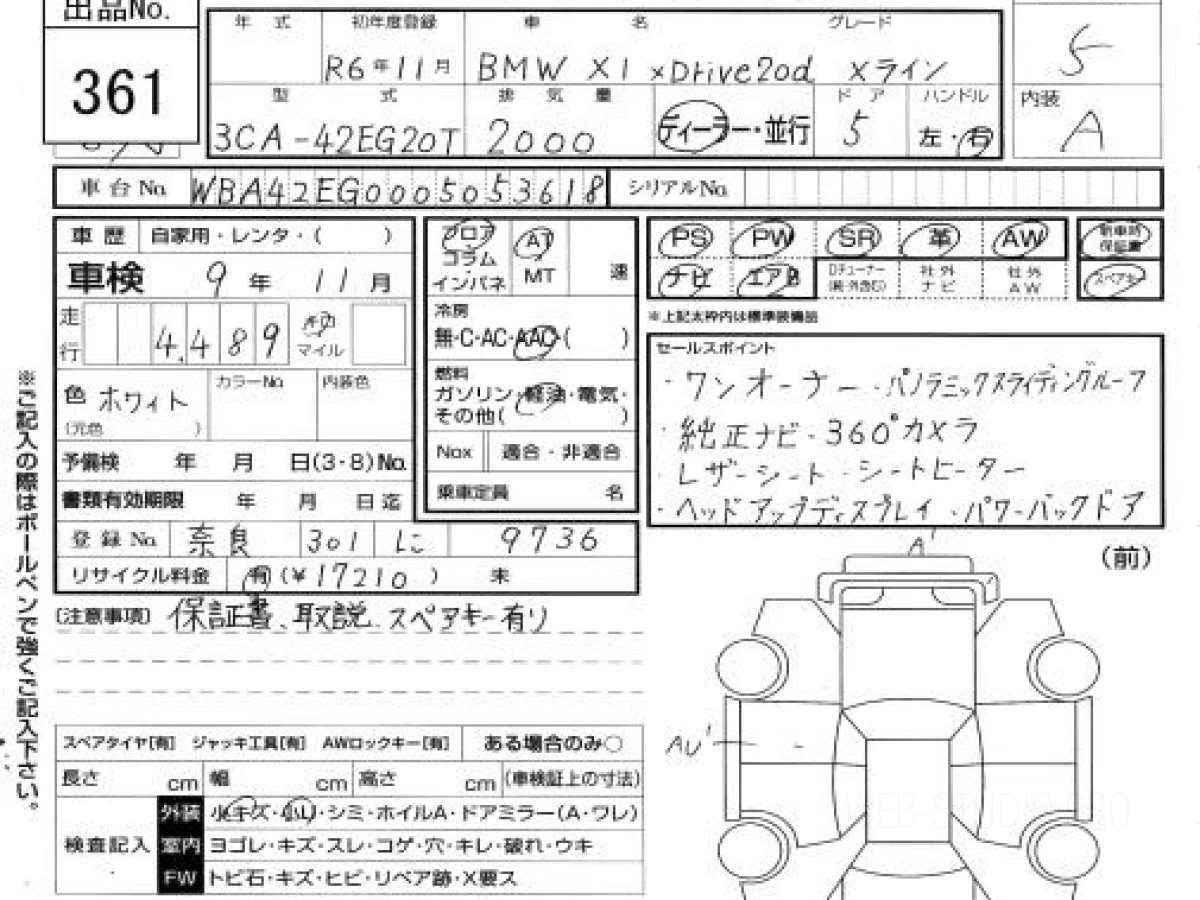 出品No.
361
年式 初年度登録 車名 グレード
R6年11月 BMW X1 xDrive20d Xライン
5
型式 排気量 ドア ハンドル
3CA-42EG20T 2000 ディーラー・並行 5 左・右
内装
A
車台No. WBA42EG0005053618 シリアルNo.
車歴 自家用・レンタ・( )
車検 9年 11月
走行 4,489 キロ マイル
色 ホワイト カラーNo. 内装色
(元色 )
予備検 年 月 日(3・8)No.
書類有効期限 年 月 日迄
登録No. 奈良 301 に 9736
リサイクル料金 有(¥17210) 未
フロア コラム インパネ AT MT 速
冷房
無・C・AC・AAC・( )
燃料
ガソリン・軽油・電気・
その他( )
Nox 適合・非適合
乗車定員 名
PS PW SR 革 AW 新車時保証書
ナビ エアB Dチューナー 社外ナビ 社外AW スペアキー
※上記太枠内は標準装備品
セールスポイント
・ワンオーナー・パノラミックスライディングルーフ
・純正ナビ・360°カメラ
・レザーシート・シートヒーター
・ヘッドアップディスプレイ・パワーバックドア
(注意事項) 保証書、取説、スペアキー有り
※ご記入の際はボールペンで強くご記入下さい。
A'
(前)
AU'
スペアタイヤ[有] ジャッキ工具[有] AWロックキー[有] ある場合のみ○
長さ cm 幅 cm 高さ cm (車検証上の寸法)
検査記入
外装 小キズ・小凹・シミ・ホイルA・ドアミラー(A・ワレ)
室内 ヨゴレ・キズ・スレ・コゲ・穴・キレ・破れ・ウキ
FW トビ石・キズ・ヒビ・リペア跡・X要ス